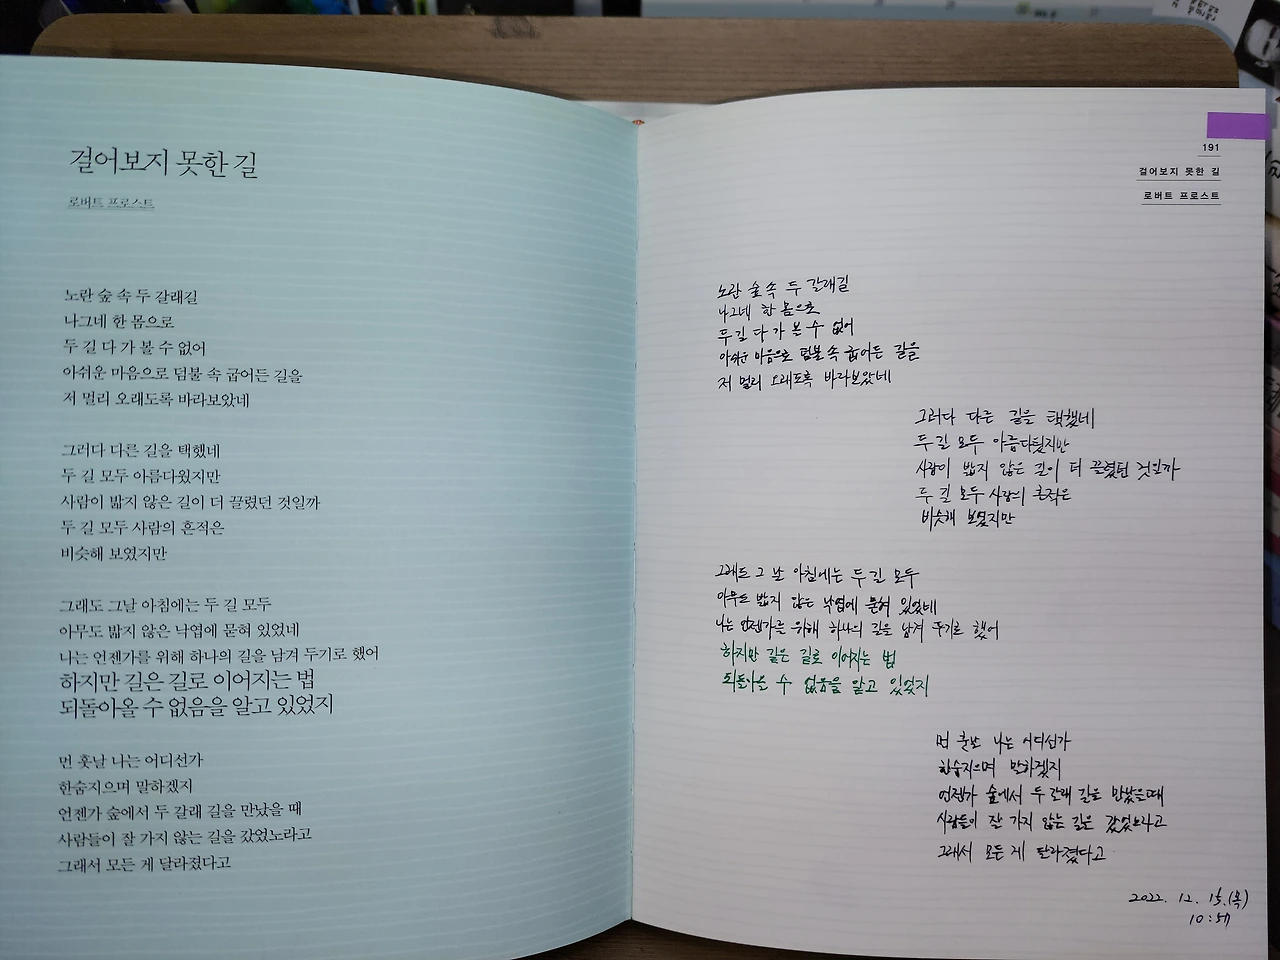 걸어보지 못한 길
로버트 프로스트
노란 숲 속 두 갈래길
나그네 한 몸으로
두 길 다 가 볼 수 없어
아쉬운 마음으로 덤불 속 굽어든 길을
저 멀리 오래도록 바라보았네
그러다 다른 길을 택했네
두 길 모두 아름다웠지만
사람이 밟지 않은 길이 더 끌렸던 것일까
두 길 모두 사람의 흔적은
비슷해 보였지만
그래도 그날 아침에는 두 길 모두
아무도 밟지 않은 낙엽에 묻혀 있었네
나는 언젠가를 위해 하나의 길을 남겨 두기로 했어
하지만 길은 길로 이어지는 법
되돌아올 수 없음을 알고 있었지
먼 훗날 나는 어디선가
한숨지으며 말하겠지
언젠가 숲에서 두 갈래 길을 만났을 때
사람들이 잘 가지 않는 길을 갔었노라고
그래서 모든 게 달라졌다고
191
걸어보지 못한 길
로버트 프로스트
노란 숲 속 두 갈래길
나그네 한 몸으로
두 길 다 가 볼 수 없어
아쉬운 마음으로 덤불 속 굽어든 길을
저 멀리 오래도록 바라보았네
그러다 다른 길을 택했네
두 길 모두 아름다웠지만
사람이 밟지 않은 길이 더 끌렸던 것일까
두 길 모두 사람의 흔적은
비슷해 보였지만
그래도 그 날 아침에는 두 길 모두
아무도 밟지 않은 낙엽에 묻혀 있었네
나는 언젠가를 위해 하나의 길을 남겨 두기로 했어
하지만 길은 길로 이어지는 법
되돌아올 수 없음을 알고 있었지
먼 훗날 나는 어디선가
한숨지으며 말하겠지
언젠가 숲에서 두 갈래 길을 만났을 때
사람들이 잘 가지 않는 길은 갔었노라고
그래서 모든 게 달라졌다고
2022. 12. 15.(목)
10:57